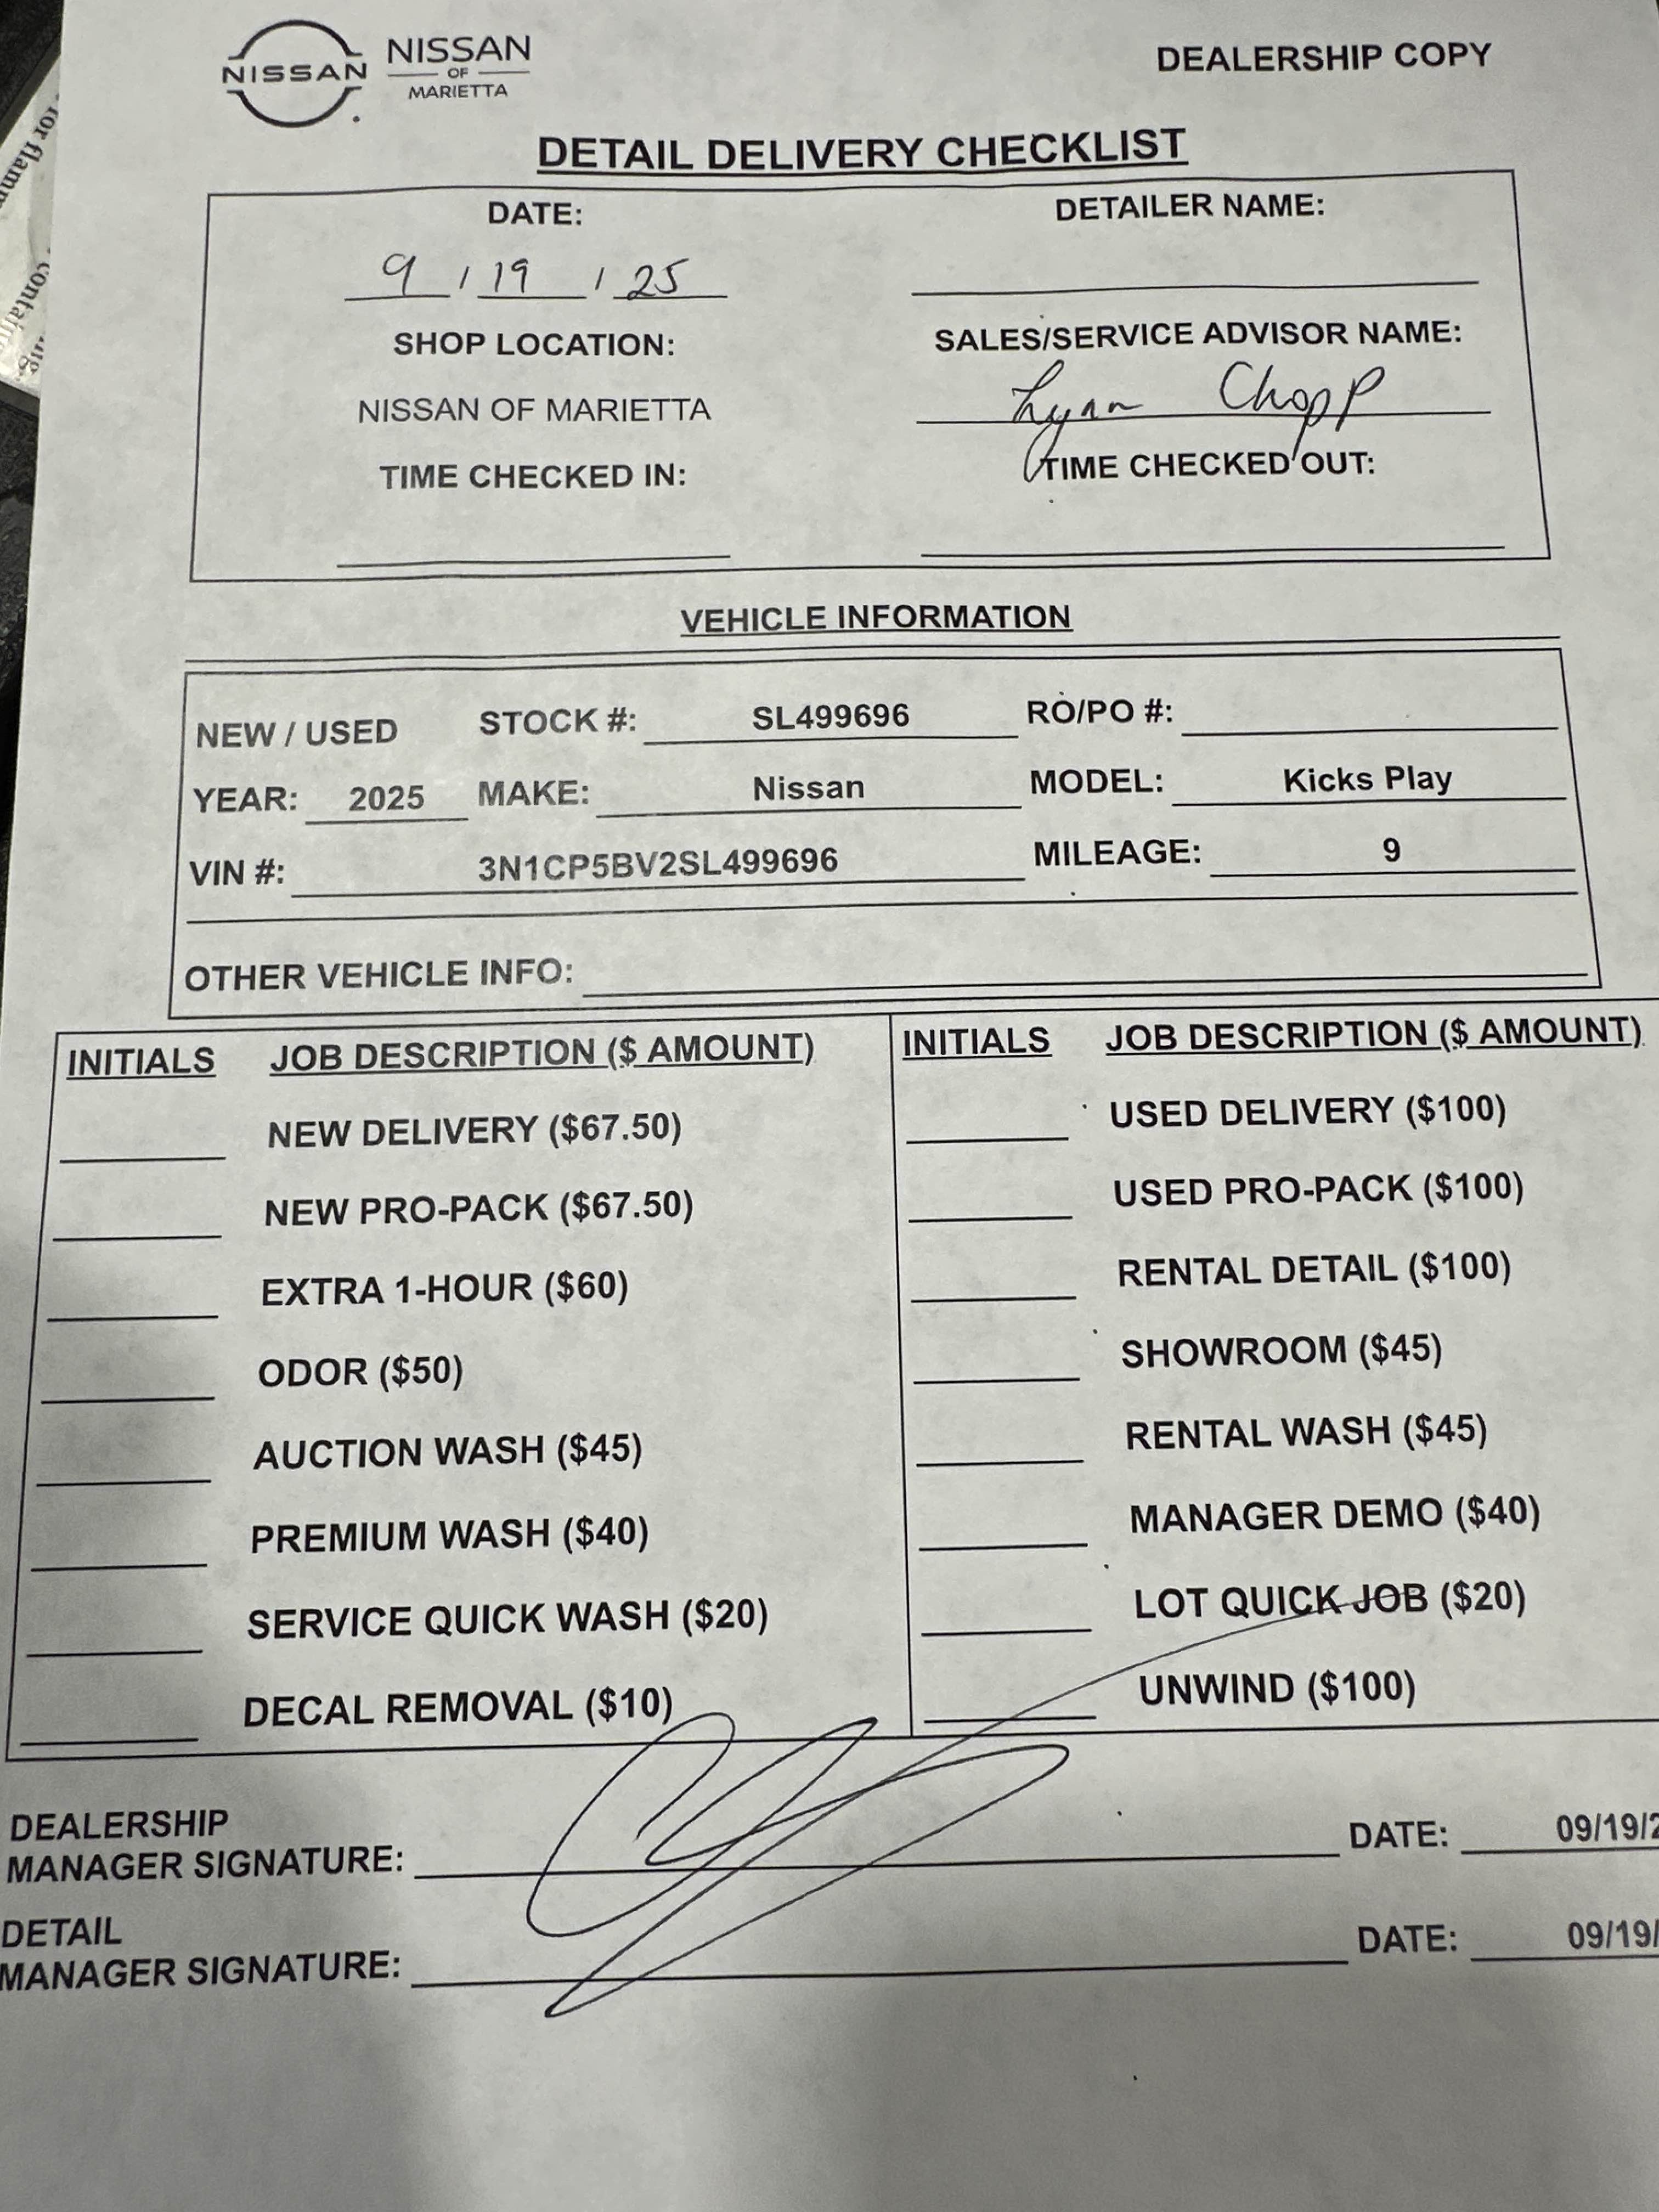 NISSAN
NISSAN
OF
MARIETTA
DEALERSHIP COPY
DETAIL DELIVERY CHECKLIST
DATE:
9 / 19 / 25
DETAILER NAME:
SHOP LOCATION:
NISSAN OF MARIETTA
SALES/SERVICE ADVISOR NAME:
Lynn Chopp
TIME CHECKED IN:
TIME CHECKED OUT:
VEHICLE INFORMATION
NEW / USED STOCK #: SL499696 RO/PO #:
YEAR: 2025 MAKE: Nissan MODEL: Kicks Play
VIN #: 3N1CP5BV2SL499696 MILEAGE: 9
OTHER VEHICLE INFO:
INITIALS JOB DESCRIPTION ($ AMOUNT)
NEW DELIVERY ($67.50)
NEW PRO-PACK ($67.50)
EXTRA 1-HOUR ($60)
ODOR ($50)
AUCTION WASH ($45)
PREMIUM WASH ($40)
SERVICE QUICK WASH ($20)
DECAL REMOVAL ($10)
INITIALS JOB DESCRIPTION ($ AMOUNT)
USED DELIVERY ($100)
USED PRO-PACK ($100)
RENTAL DETAIL ($100)
SHOWROOM ($45)
RENTAL WASH ($45)
MANAGER DEMO ($40)
LOT QUICK JOB ($20)
UNWIND ($100)
DEALERSHIP
MANAGER SIGNATURE: DATE: 09/19/2
DETAIL
MANAGER SIGNATURE: DATE: 09/19/
for flam
contain